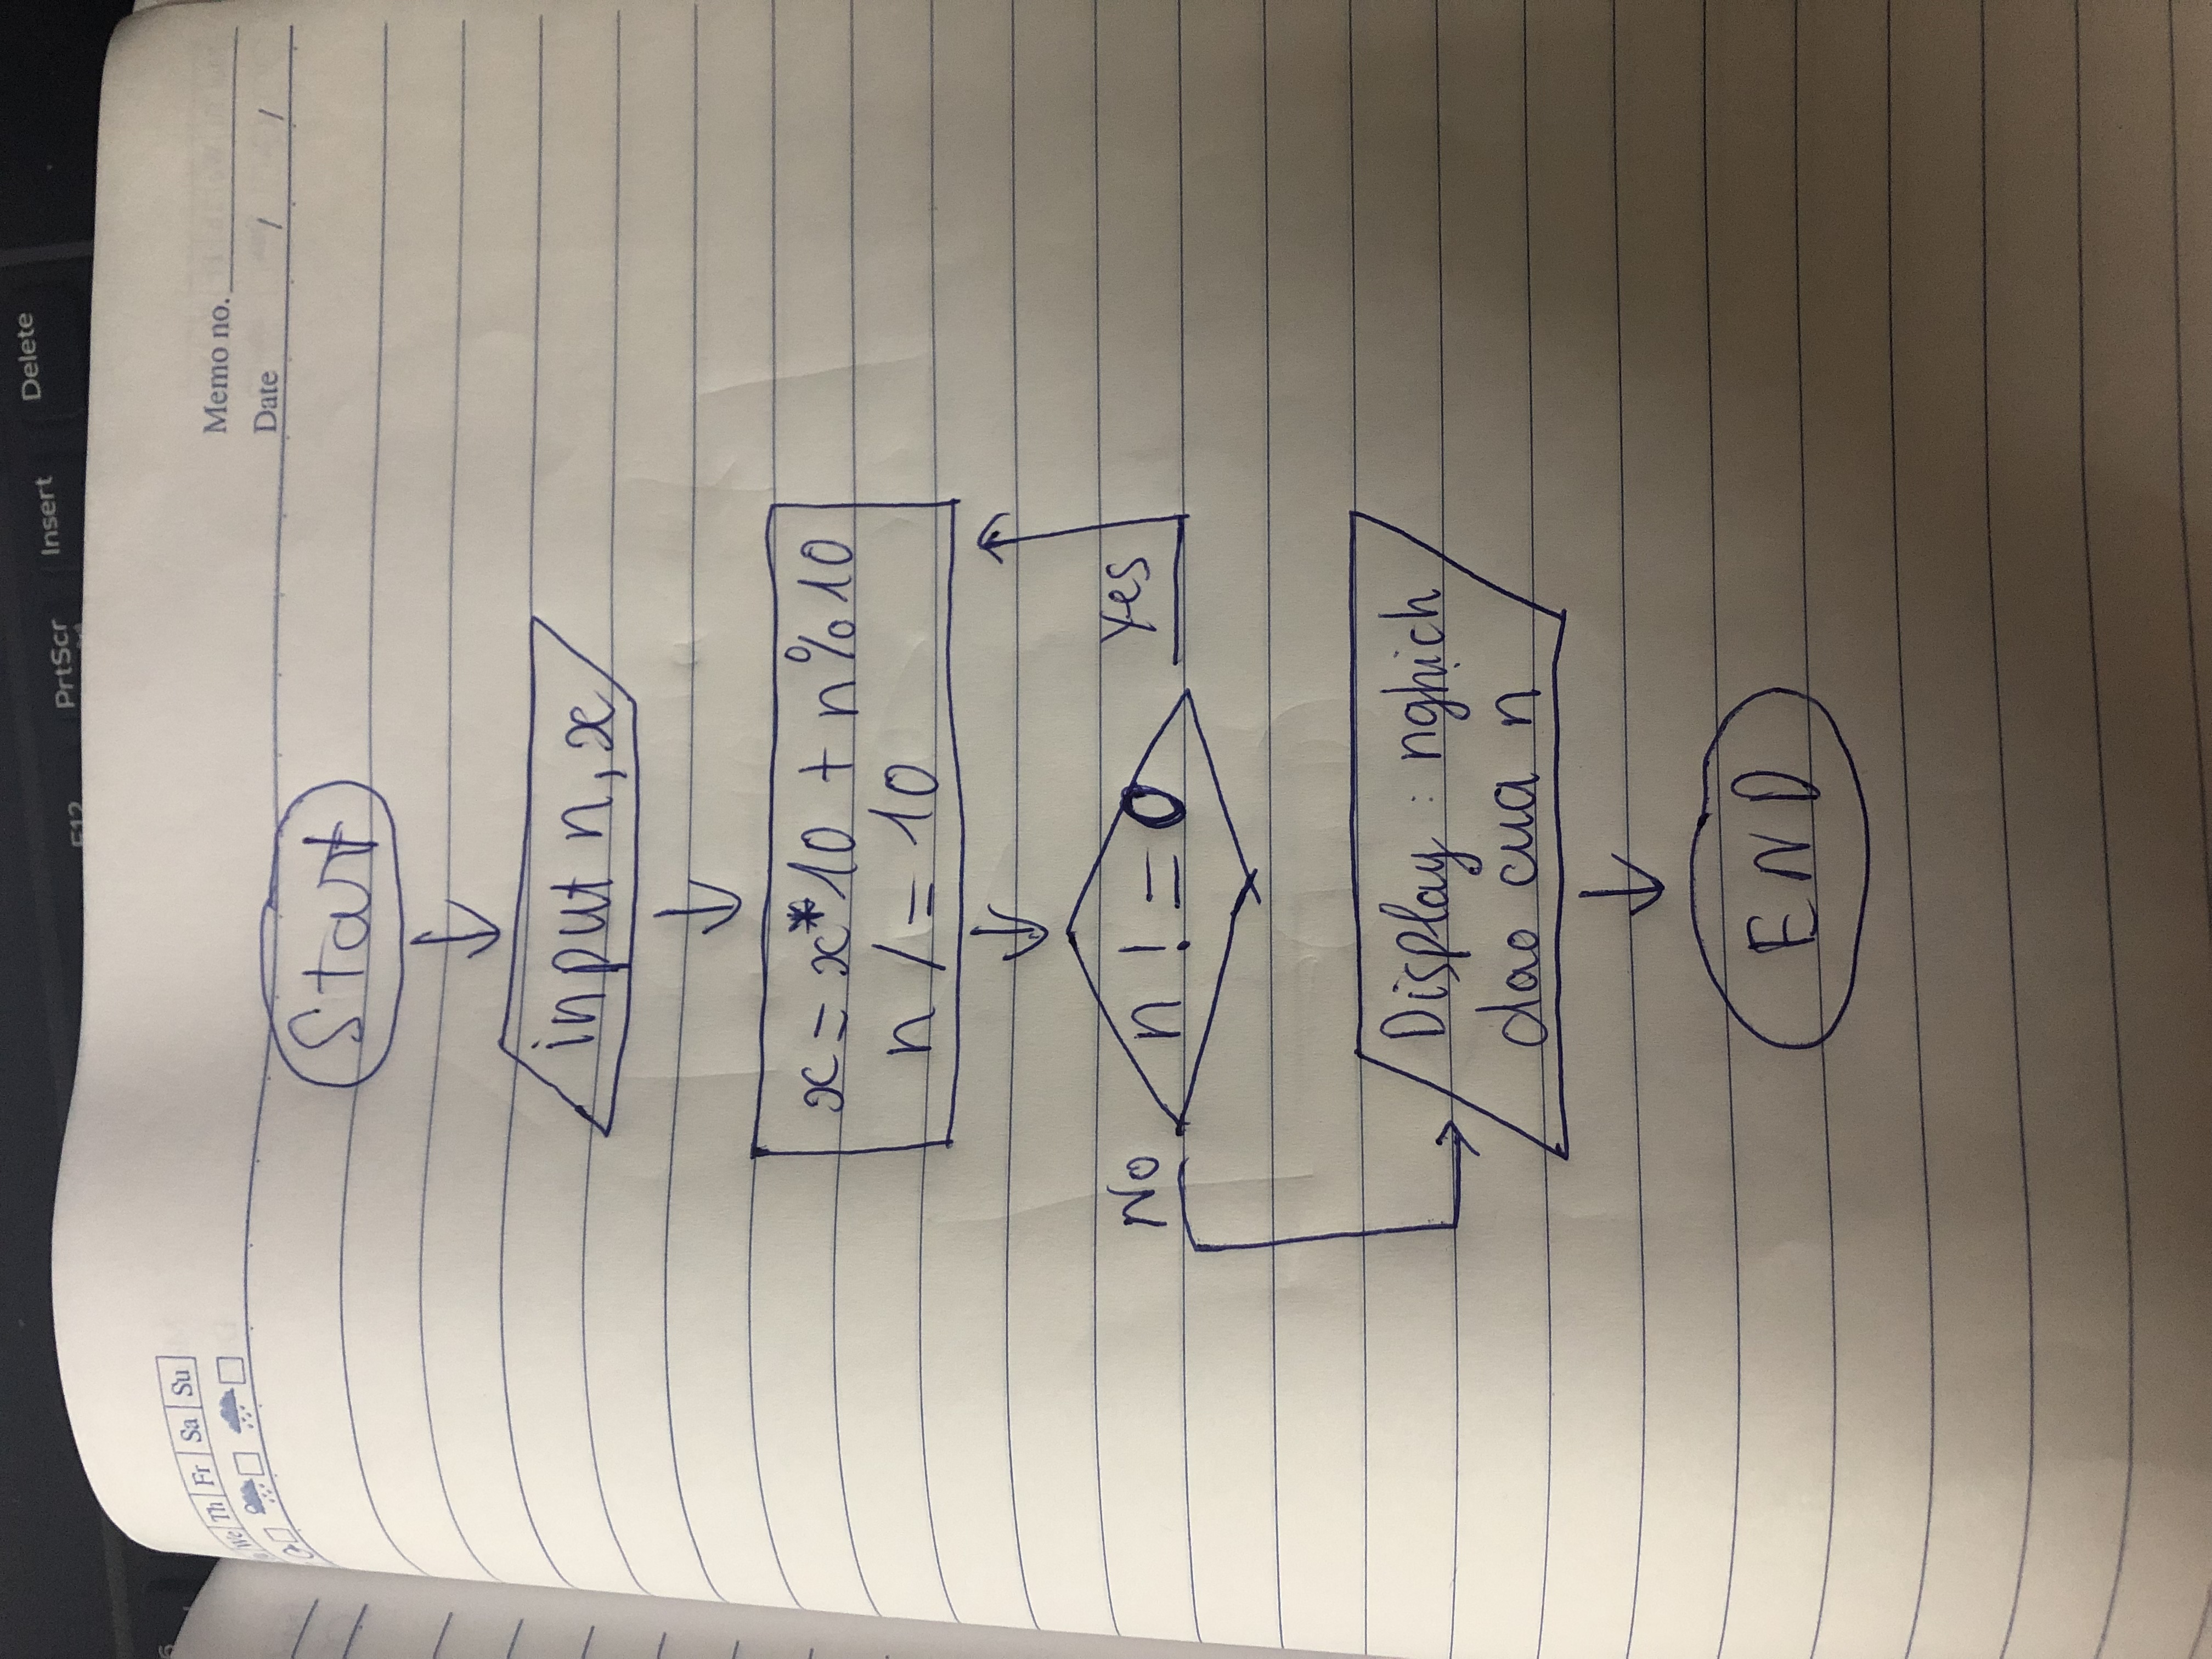 F12 PrtScr Insert Delete
We Th Fr Sa Su
Memo no.
Date / /
Start
input n, x
x = x*10 + n%10
n /= 10
n != 0
No
Yes
Display : nghịch
dao cua n
END